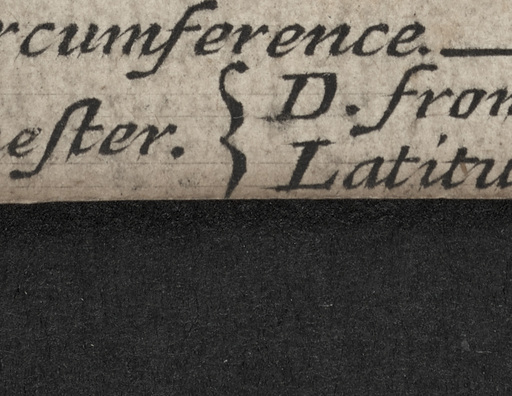 rcumference.
eſter. { D. from
Latitu